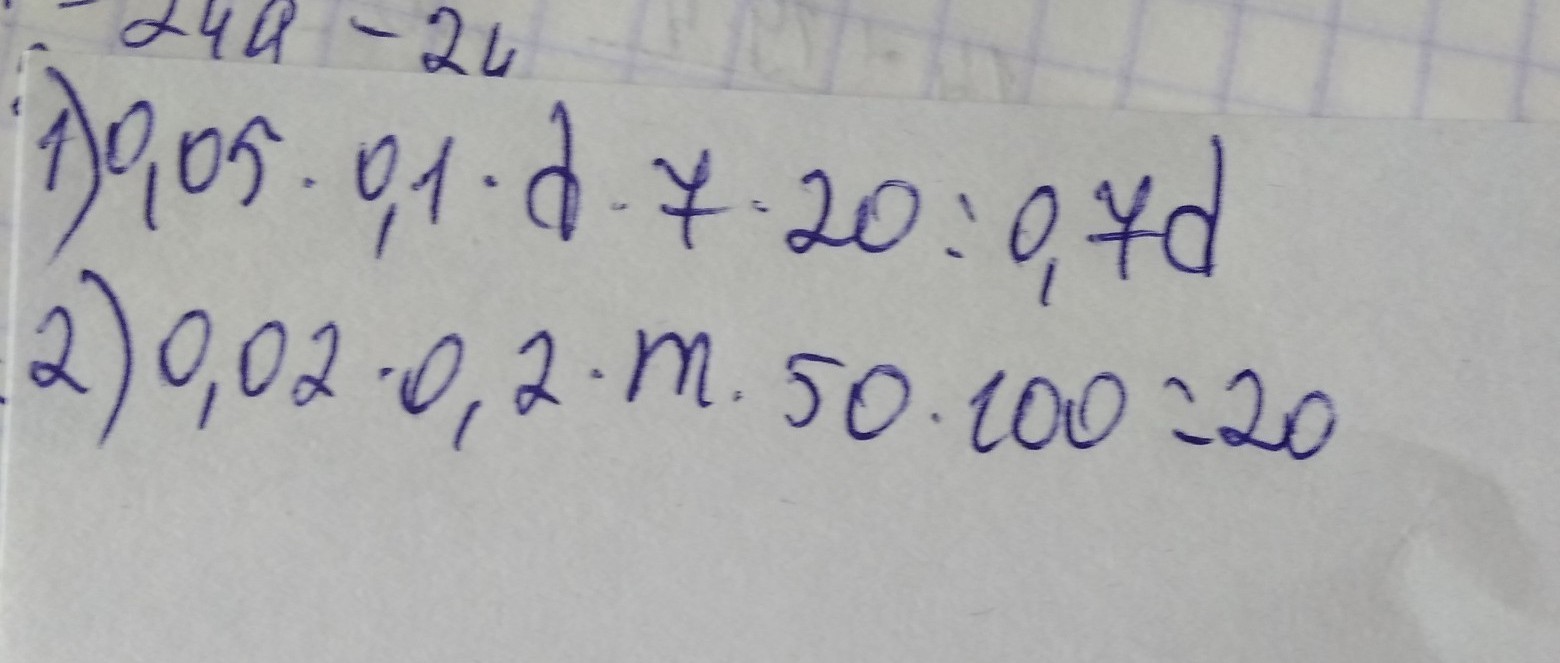 24a - 24
1) 0,05 · 0,1 · d · 7 · 20 = 0,7d
2) 0,02 · 0,2 · m · 50 · 100 = 20